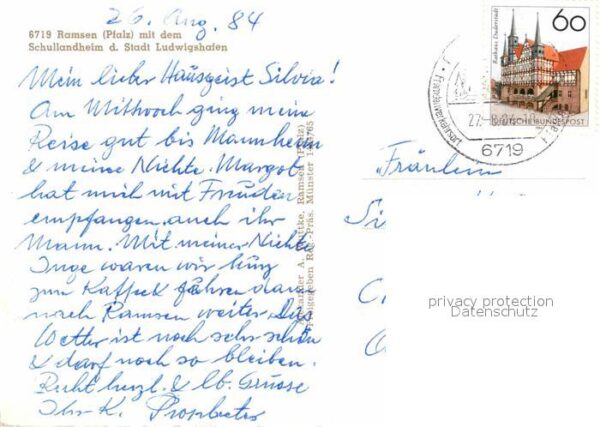 26. Aug. 84
6719 Ramsen (Pfalz) mit dem
Schullandheim d. Stadt Ludwigshafen
Mein lieber Hausgeist Silvia!
Am Mittwoch ging meine
Reise gut bis Mannheim
& meine Nichte. Margot
hat mich mit Freuden
empfangen auch ihr
Mann. Mit meiner Nichte
Inge waren wir kurz
zum Kaffee & fahren dann
nach Ramsen weiter. Das
Wetter ist noch sehr schön
& darf noch so bleiben.
Recht herzl. & lb. Grüsse
Ihr K.
Ramsen (Pfalz)
Freigegeben Reg.-Präs. Münster
Rathaus Duderstadt
60
DEUTSCHE BUNDESPOST
6719
Fräulein
Si
privacy protection
Datenschutz